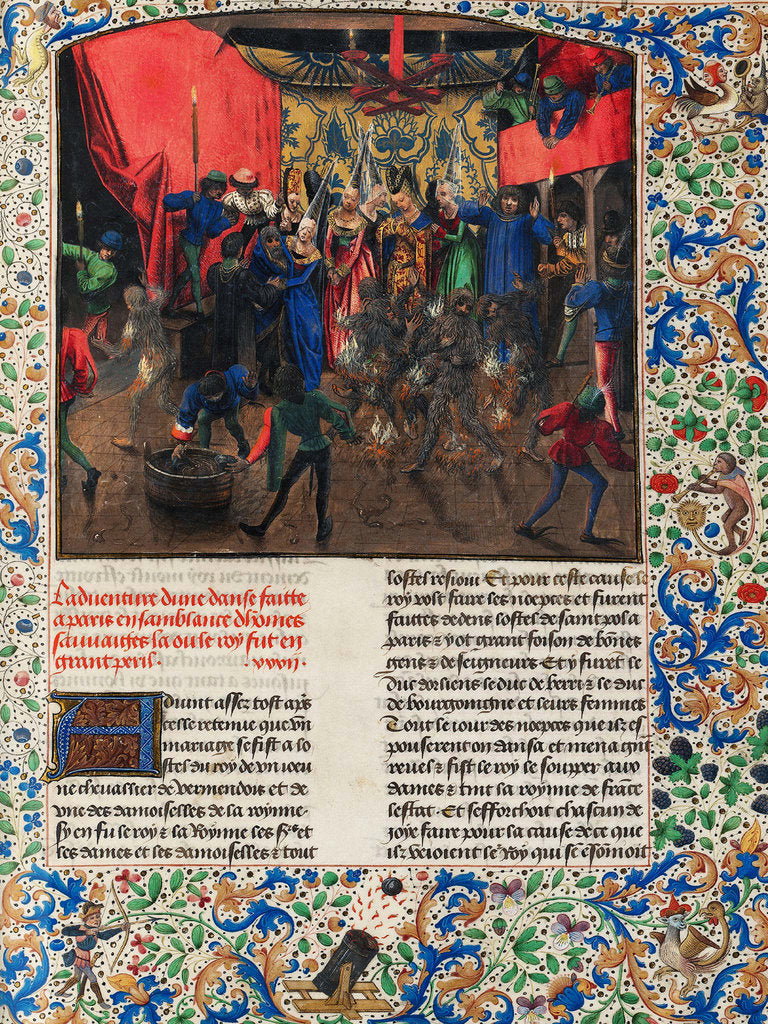 Laduenture dune danse faitte
a paris en samblance dhōmes
sauuaiges la ou le roy fut en
grant peril · xxxij ·
Aduint assez tost aps
celle retenue que vn
mariage se fist a lo
stel du roy de vn ioeu
ne cheuallier de vermendois et de
vne des damoiselles de la royne
sy en fu le roy & la Royne les & et
les dames et les damoiselles & tout
lostel resioui Et pour ceste cause le
roy volt faire les noepces et furent
faittes dedens lostel de saint pol a
paris & y ot grant foison de bōnes
gens & de seigneurs Et y furēt le
duc dorliens le duc de berri & le duc
de bourgoingne et leurs femmes
Tout le iour des noepces que ilz es
pouserent on dansa et mena gnt
reuel & fist le roy le soupper aux
dames & tint la royne de frāce
lestat · Et sefforchoit chascun de
joye faire pour la cause de ce que
ilz veioient le Roy qui se esōnioit